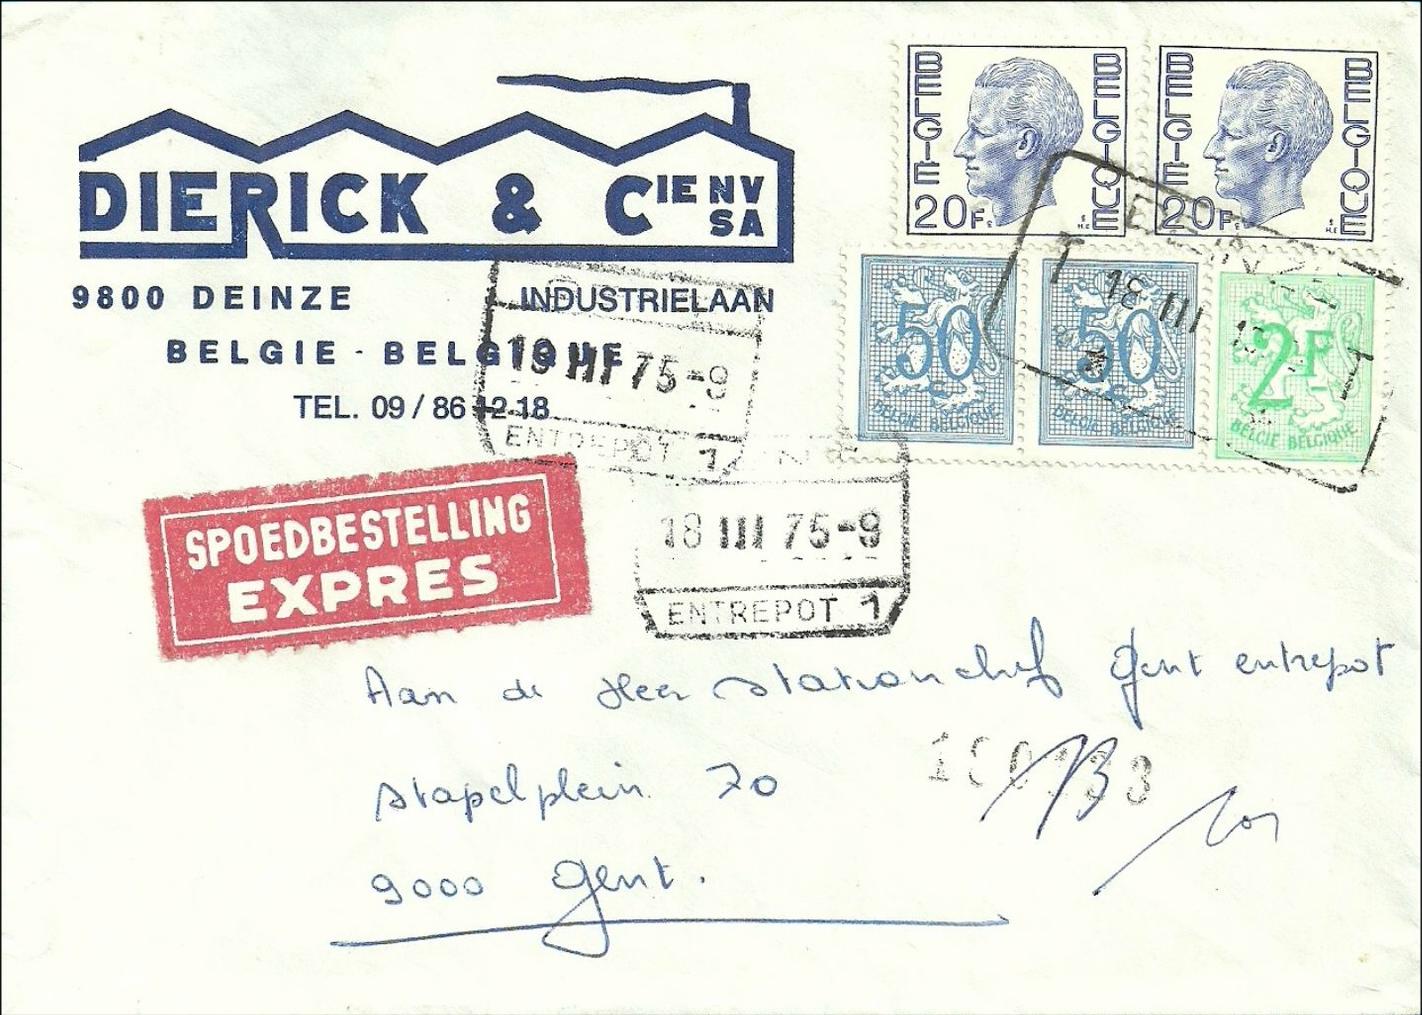 DIERICK & CIE NV SA
9800 DEINZE INDUSTRIELAAN
BELGIE - BELGIQUE
TEL. 09 / 86 12 18
BELGIE BELGIQUE 20F
BELGIE BELGIQUE 20F
50c BELGIE BELGIQUE
50c BELGIE BELGIQUE
2F BELGIE BELGIQUE
18 III
19 III 75-9
ENTREPOT 1
18 III 75-9
ENTREPOT 1
SPOEDBESTELLING
EXPRES
Aan de Heer stationchef Gent entrepot
stapelplein 70
9000 Gent.